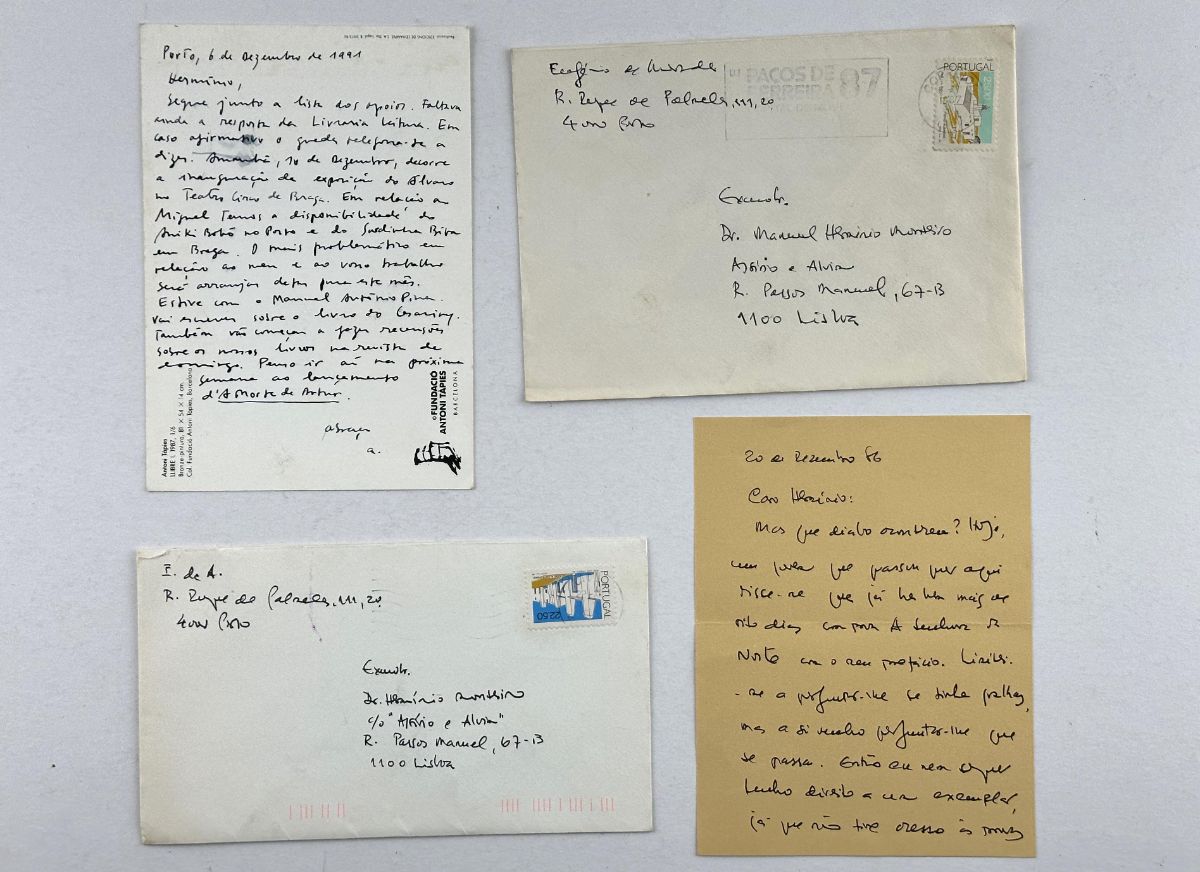 Porto, 6 de Dezembro de 1991
Hermínio,
Segue junto a lista dos apoios. Faltava
ainda a resposta da Livraria Leitura. Em
caso afirmativo o guedes telefona-te a
dizer. Amanhã, 10 de Dezembro, decorre
a inauguração da exposição do Álvaro
no Teatro Circo de Braga. Em relação ao
Miguel temos a disponibilidade do
Aniki Bobó no Porto e do Sardinha Biba
em Braga. O mais problemático em
relação ao meu e ao vosso trabalho
será arranjar datas para este mês.
Estive com o Manuel António Pina.
vai escrever sobre o livro do Cesariny.
Também vão começar a fazer recensões
sobre os nossos livros na revista de
domingo. Penso ir aí na próxima
semana ao lançamento
d'A Morte de Artur.
abraço
a.
Antoni Tàpies
LLIBRE I, 1987, 1/6
Bronze pintura,
Col. Fundació Antoni Tàpies, Barcelona
© FUNDACIÓ
ANTONI TÀPIES
BARCELONA
Eugénio de Andrade
R. Duque de Palmela, 111, 2º
4000 Porto
PAÇOS DE
FERREIRA
87
PORTUGAL
Exmo Sr.
Dr. Manuel Hermínio Monteiro
Assírio e Alvim
R. Passos Manuel, 67-B
1100 Lisboa
E. de A.
R. Duque de Palmela, 111, 2º
4000 Porto
PORTUGAL
22.50
Exmo Sr.
Dr. Hermínio Monteiro
c/o "Assírio e Alvim"
R. Passos Manuel, 67-B
1100 Lisboa
20 de Dezembro 86
Caro Hermínio:
Mas que diabo acontece? Hoje,
um poeta que passou por aqui
disse-me que já há bem mais de
oito dias comprou A Senhora de
Norte com o meu prefácio. Limitei-
-me a perguntar-lhe se tinha
mas a si venho perguntar-lhe que
se passa. Então eu nem sequer
tenho direito a um exemplar,
já que não tive acesso às provas